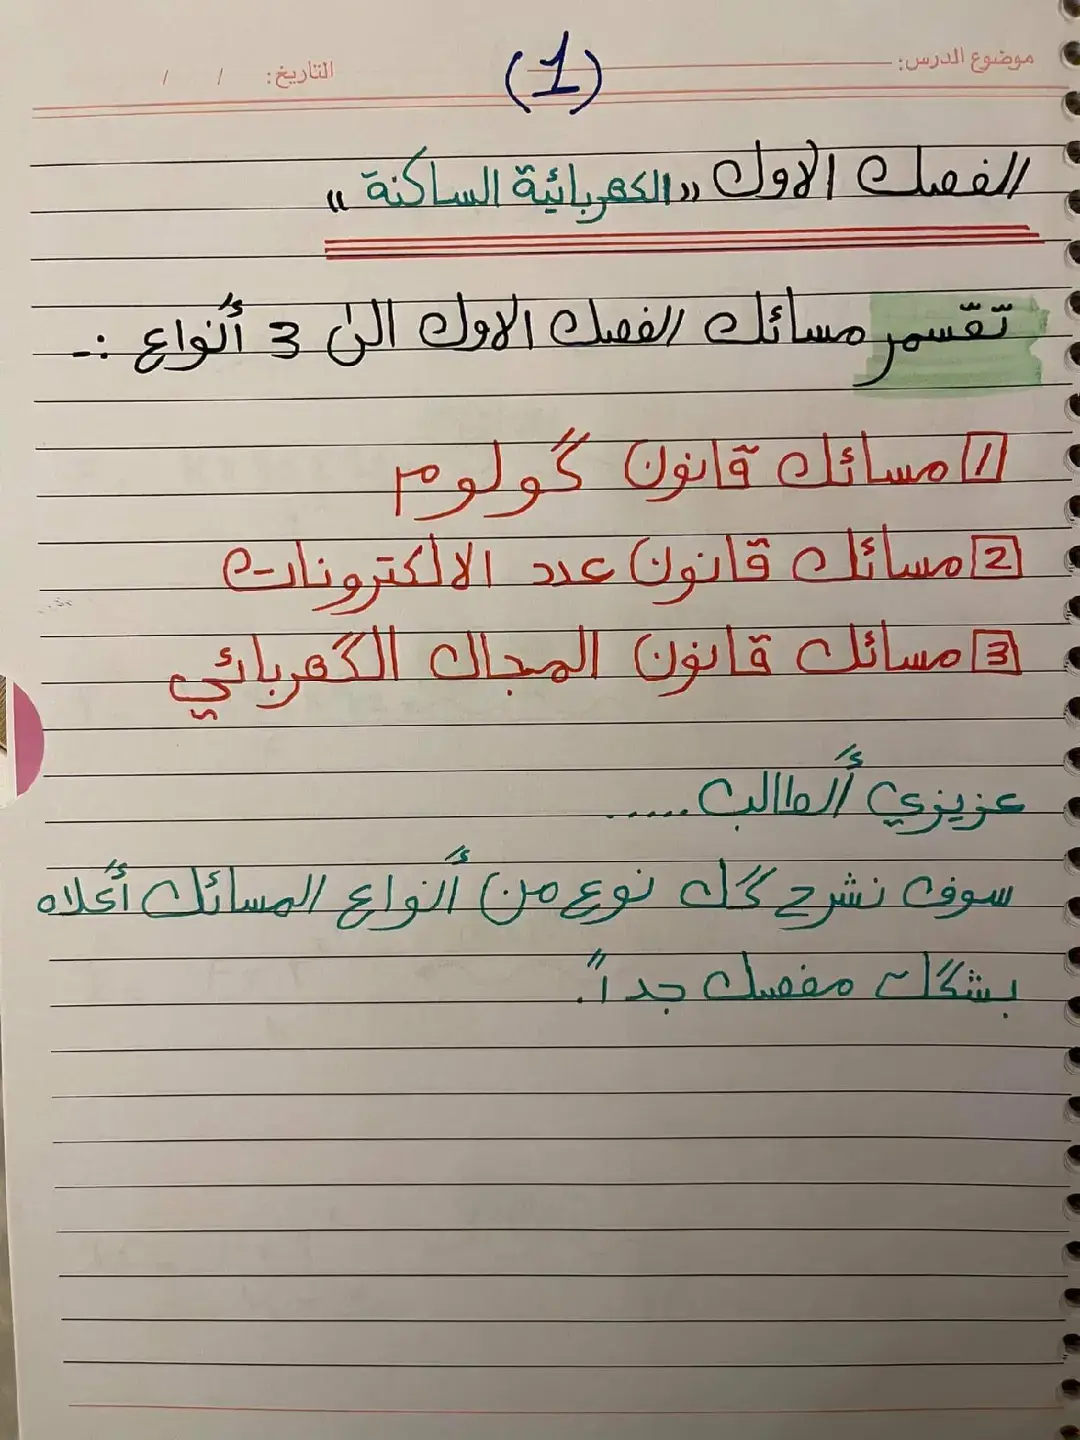 موضوع الدرس:
(1)
التاريخ: / /
الفصل الاول «الكهربائية الساكنة»
تقسم مسائل الفصل الاول الى 3 أنواع :-
1 مسائل قانون كولوم
2 مسائل قانون عدد الالكترونات
3 مسائل قانون المجال الكهربائي
عزيزي ألطالب.....
سوف نشرح كل نوع من أنواع المسائل أعلاه
بشكل مفصل جداً.